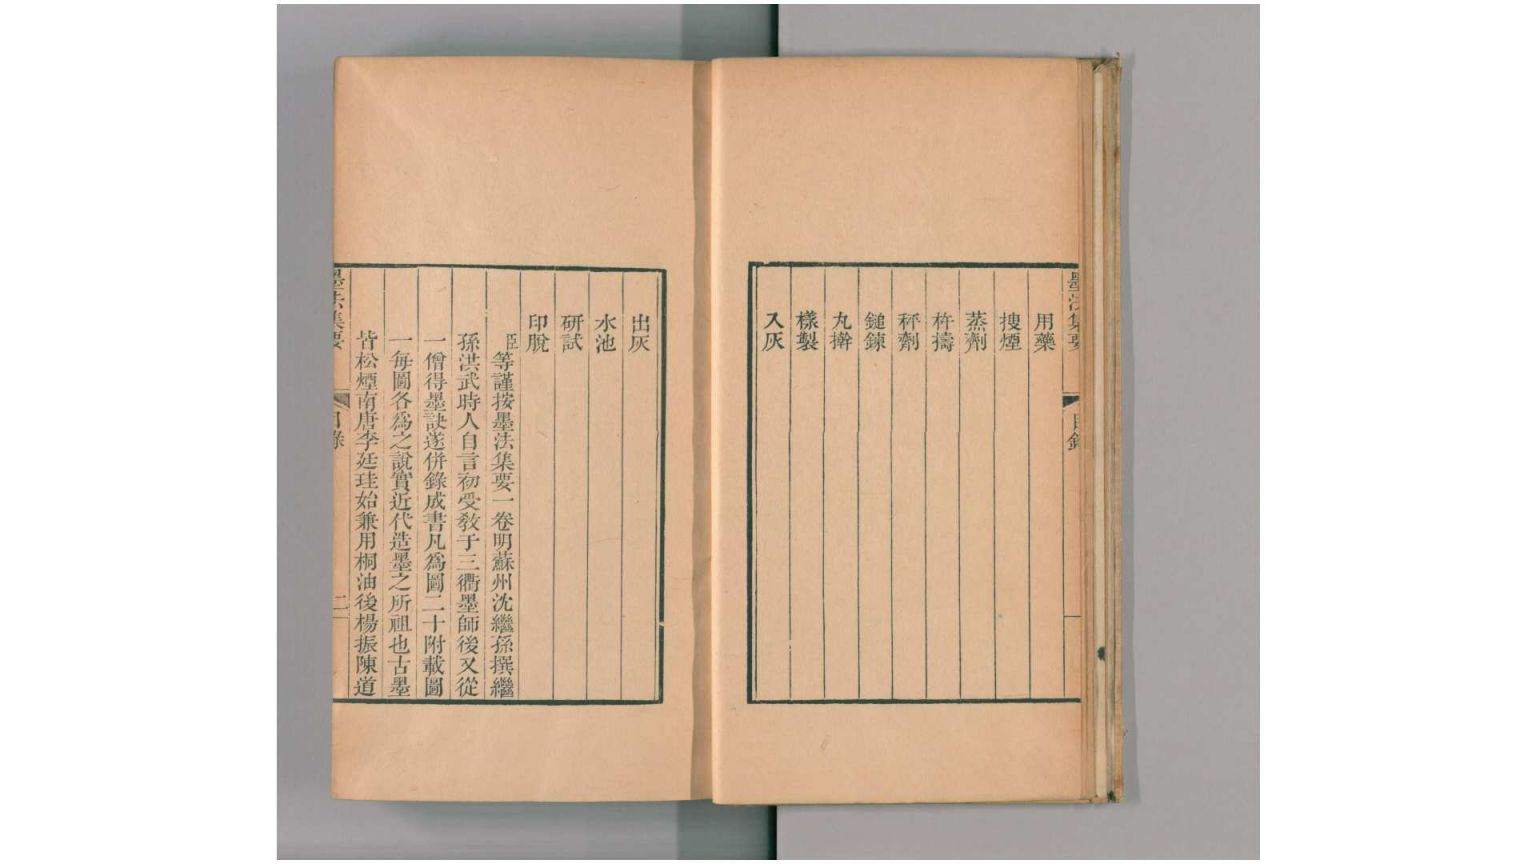 墨法集要
目錄
用藥
搜煙
蒸劑
杵擣
秤劑
鎚鍊
丸擀
樣製
入灰
出灰
水池
研試
印脫
臣等謹按墨法集要一卷明蘇州沈繼孫撰繼
孫洪武時人自言初受敎于三衢墨師後又從
一僧得墨訣遂併錄成書凡爲圖二十附載圖
一每圖各爲之說實近代造墨之所祖也古墨
皆松煙南唐李廷珪始兼用桐油後楊振陳道
墨法集要
目錄
二